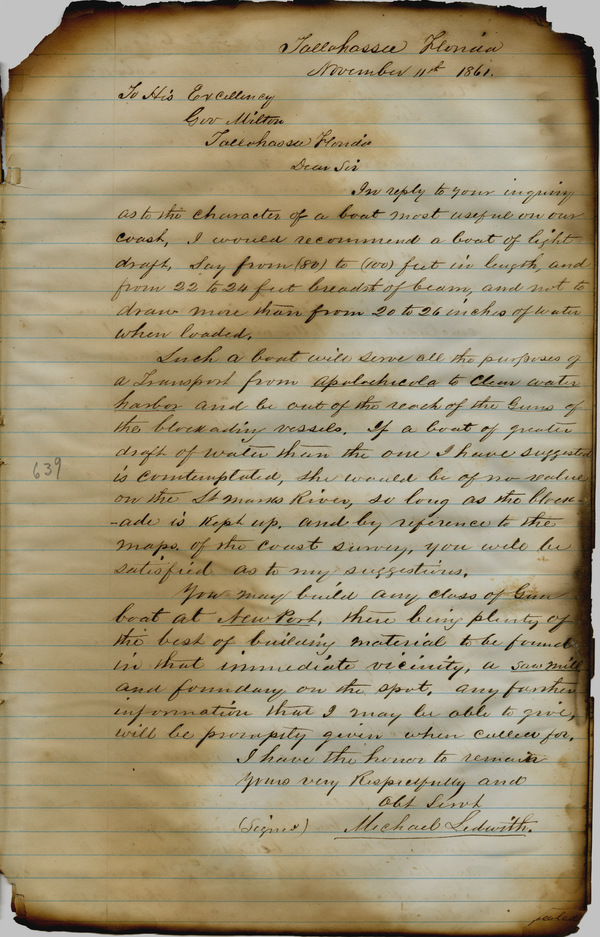 Tallahassee Florida
November 11th 1861.
To His Excellency
Gov Milton
Tallahassee Florida
Dear Sir
In reply to your inquiry
as to the character of a boat most useful on our
coast, I would recommend a boat of light
draft, Say from (80) to (100) feet in length, and
from 22 to 24 feet breadst of beam, and not to
draw more than from 20 to 26 inches of water
when loaded.
Such a boat will serve all the purposes of
a Transport from Apalachicola to Clear water
harbor and be out of the reach of the Guns of
the blockading vessels. If a boat of greater
draft of water than the one I have suggested
is comtemplated, she would be of no value
on the St Marks River, so long as the block-
-ade is Kept up. and by reference to the
maps. of the coast survey, you will be
satisfied as to my suggestions.
You may build any class of Gun
boat at New Port, there being plenty of
the best of building material to be found
in that immediate vicinity, a saw mill
and foundary on the spot. any further
information that I may be able to give,
will be promptly given when called for.
I have the honor to remain
Yours very Respectfully and
Obt Servt
(Signed) Michael Ledwith.
639